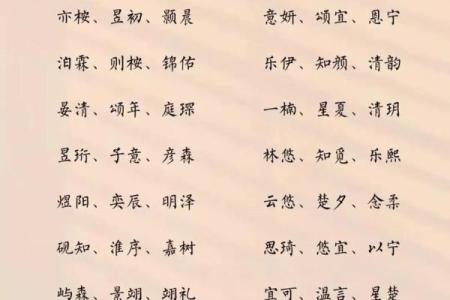 亦桉、昱初、颢晨 意妍、颂宜、恩宁
泊霖、则桉、锦佑 乐伊、知颜、清韵
晏清、颂年、庭琛 一楠、星夏、清玥
昱珩、子意、彦森 林悠、知觅、乐熙
煜阳、奕辰、明泽 云悠、楚夕、念柔
砚知、淮序、嘉树 思琦、悠宜、以宁
屿森、景翊、翊礼 宜可、温言、星楚